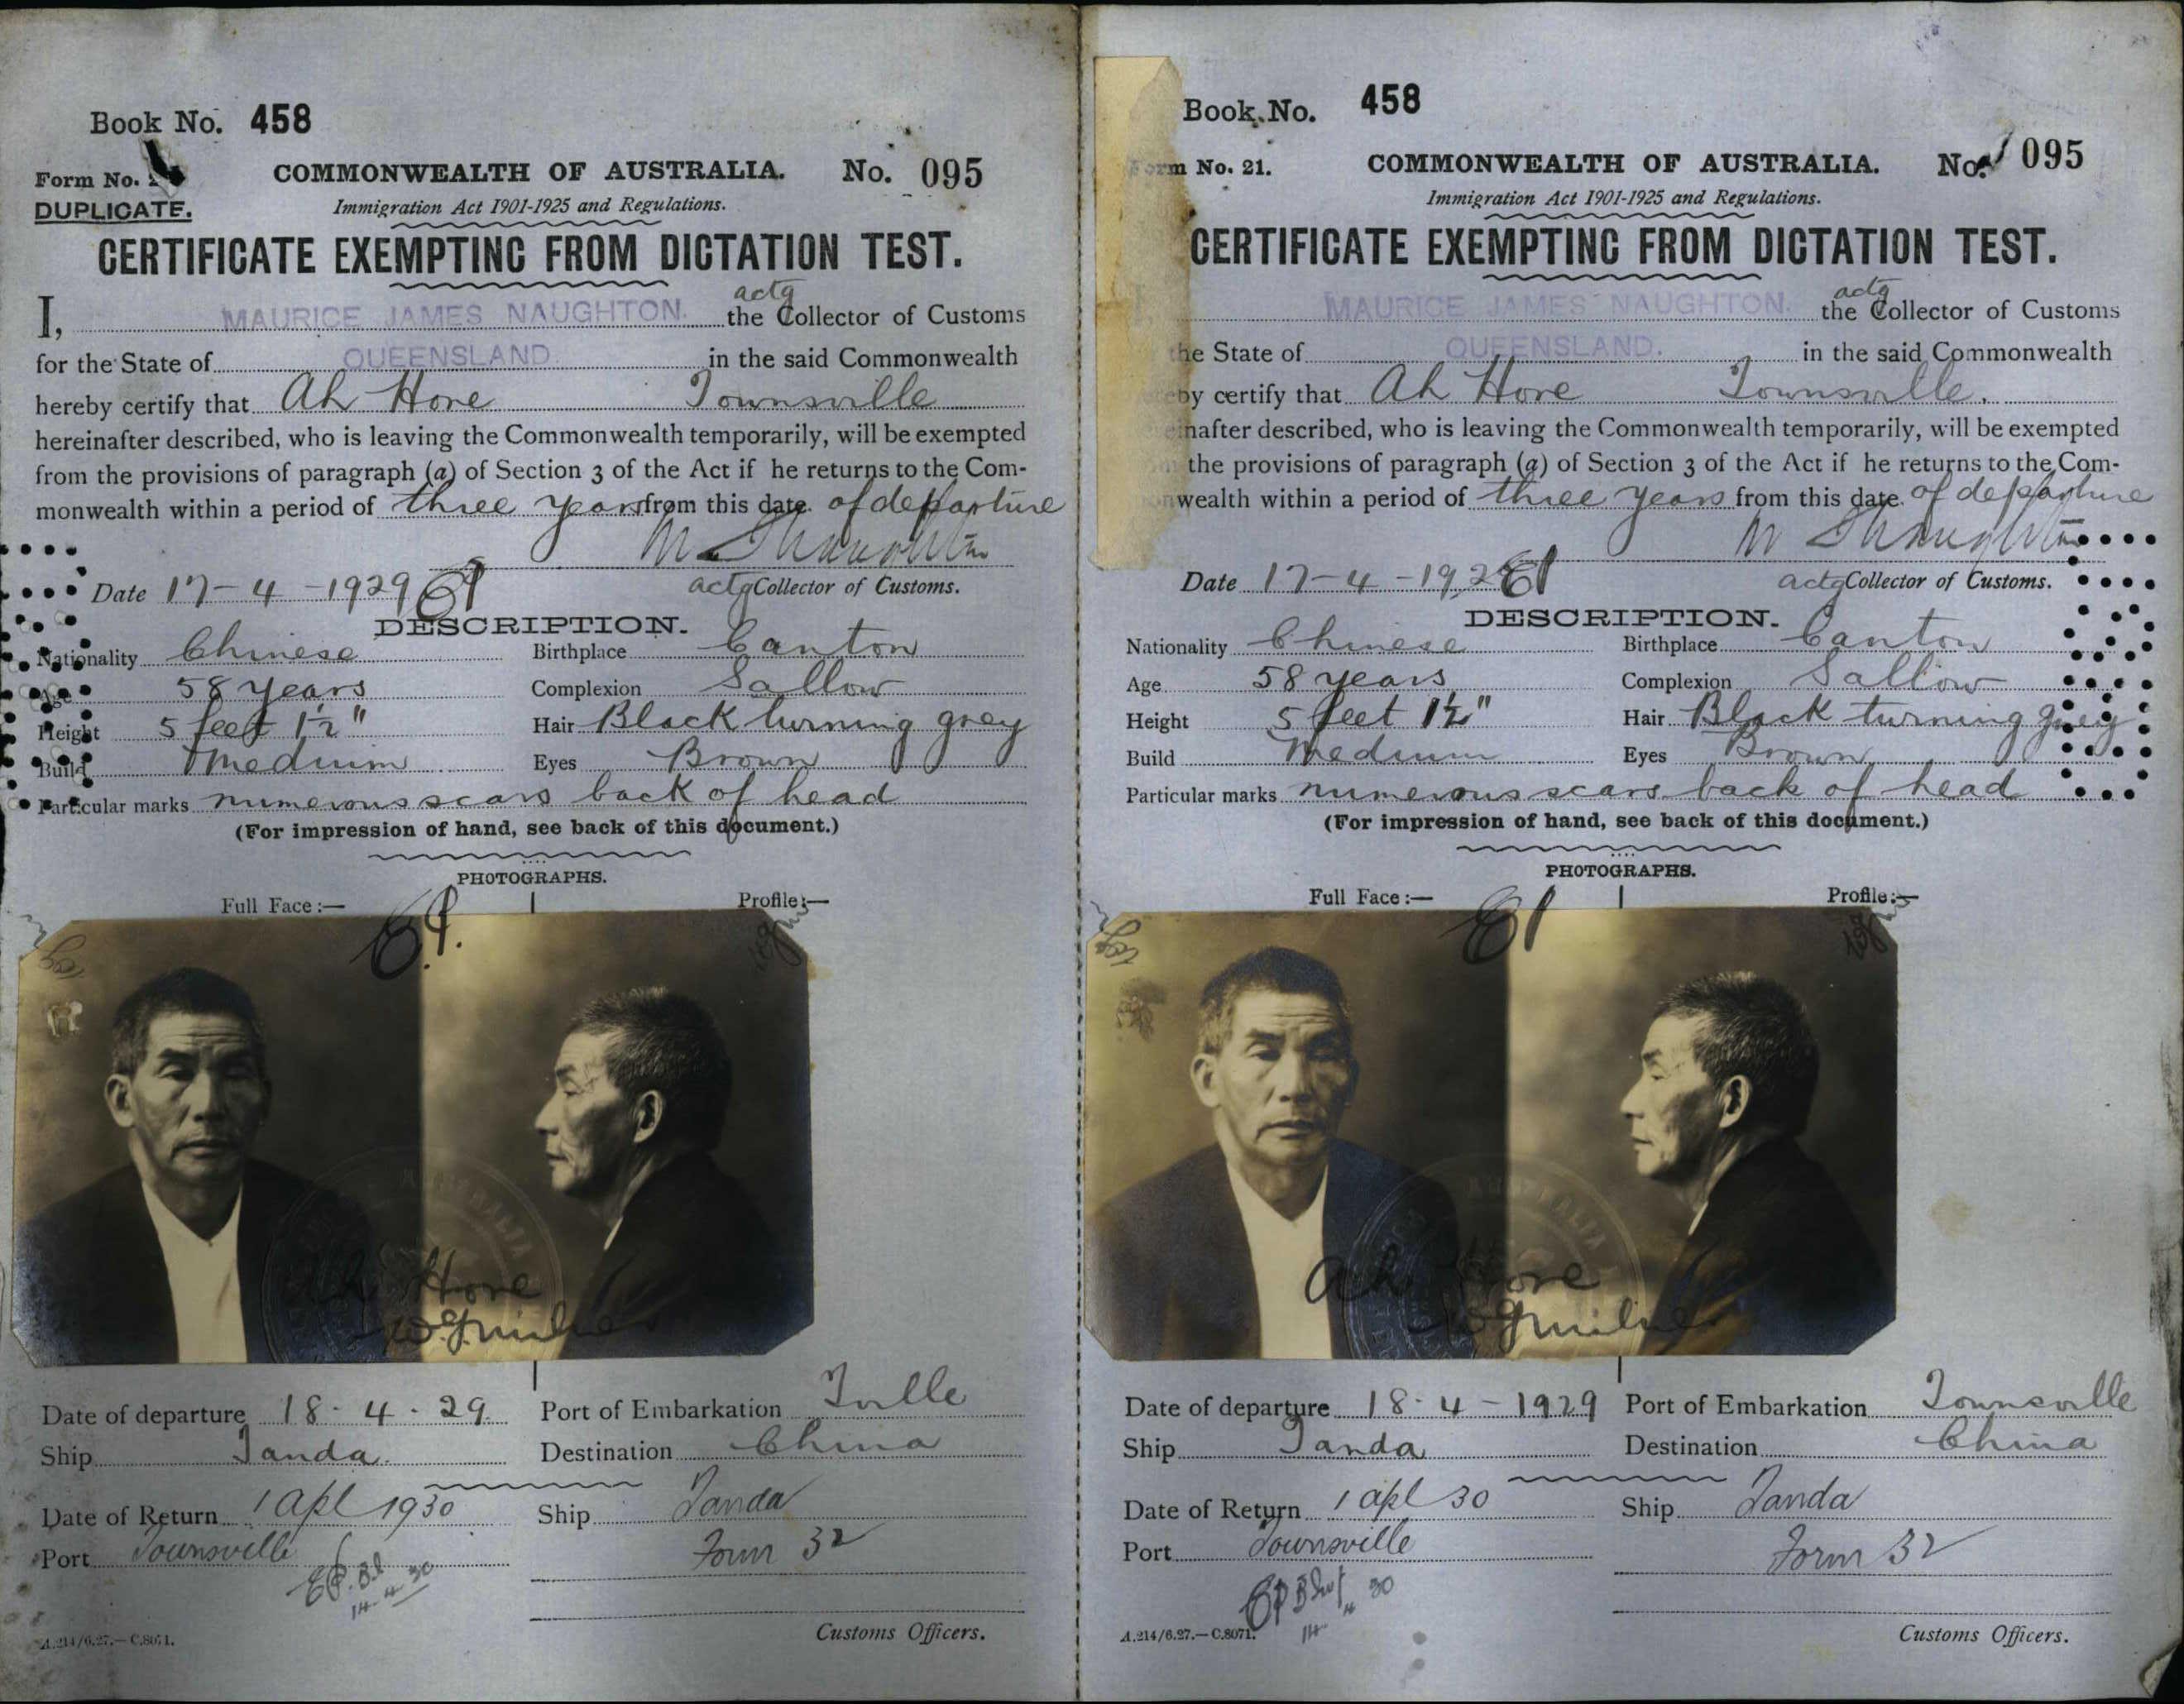 Book No. 458
Form No.
DUPLICATE.
COMMONWEALTH OF AUSTRALIA. No. 095
Immigration Act 1901-1925 and Regulations.
CERTIFICATE EXEMPTING FROM DICTATION TEST.
I, MAURICE JAMES NAUGHTON. the actg Collector of Customs
for the State of QUEENSLAND. in the said Commonwealth
hereby certify that Ah Hore Townsville
hereinafter described, who is leaving the Commonwealth temporarily, will be exempted
from the provisions of paragraph (a) of Section 3 of the Act if he returns to the Com-
monwealth within a period of three years from this date of departure
Date 17-4-1929
actg Collector of Customs.
DESCRIPTION.
Nationality Chinese Birthplace Canton
Age 58 years Complexion Sallow
Height 5 feet 1½" Hair Black turning grey
Build Medium Eyes Brown
Particular marks numerous scars back of head
(For impression of hand, see back of this document.)
PHOTOGRAPHS.
Full Face:— Profile:—
Ah Hore
Date of departure 18.4.29 Port of Embarkation Tville
Ship Tanda. Destination China
Date of Return 1 Apl 1930 Ship Tanda
Port Townsville Form 32
14-4-30
A.214/6.27.—C.8071. Customs Officers.
Book No. 458
Form No. 21. COMMONWEALTH OF AUSTRALIA. No. 095
Immigration Act 1901-1925 and Regulations.
CERTIFICATE EXEMPTING FROM DICTATION TEST.
MAURICE JAMES NAUGHTON. the actg Collector of Customs
the State of QUEENSLAND. in the said Commonwealth
by certify that Ah Hore Townsville.
inafter described, who is leaving the Commonwealth temporarily, will be exempted
the provisions of paragraph (a) of Section 3 of the Act if he returns to the Com-
wealth within a period of three years from this date of departure
Date 17-4-1929
actg Collector of Customs.
DESCRIPTION.
Nationality Chinese Birthplace Canton
Age 58 years Complexion Sallow
Height 5 feet 1½" Hair Black turning grey
Build Medium Eyes Brown
Particular marks numerous scars back of head
(For impression of hand, see back of this document.)
PHOTOGRAPHS.
Full Face:— Profile:—
Ah Hore
Date of departure 18.4-1929 Port of Embarkation Townsville
Ship Tanda Destination China
Date of Return 1 Apl 30 Ship Tanda
Port Townsville Form 32
A.214/6.27.—C.8071. Customs Officers.